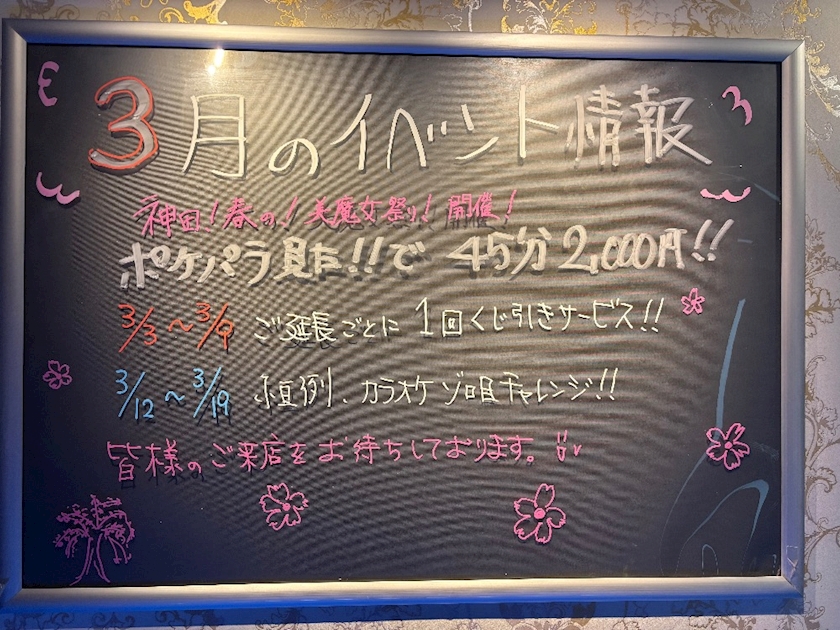 3月のイベント情報
神田!春の!美魔女祭り!開催!
ポケパラ見た!!で 45分2,000円!!
3/3〜3/9 ご延長ごとに1回くじ引きサービス!!
3/12〜3/19 小亘例、カラオケ ゾロ目チャレンジ!!
皆様のご来店をお待ちしております。